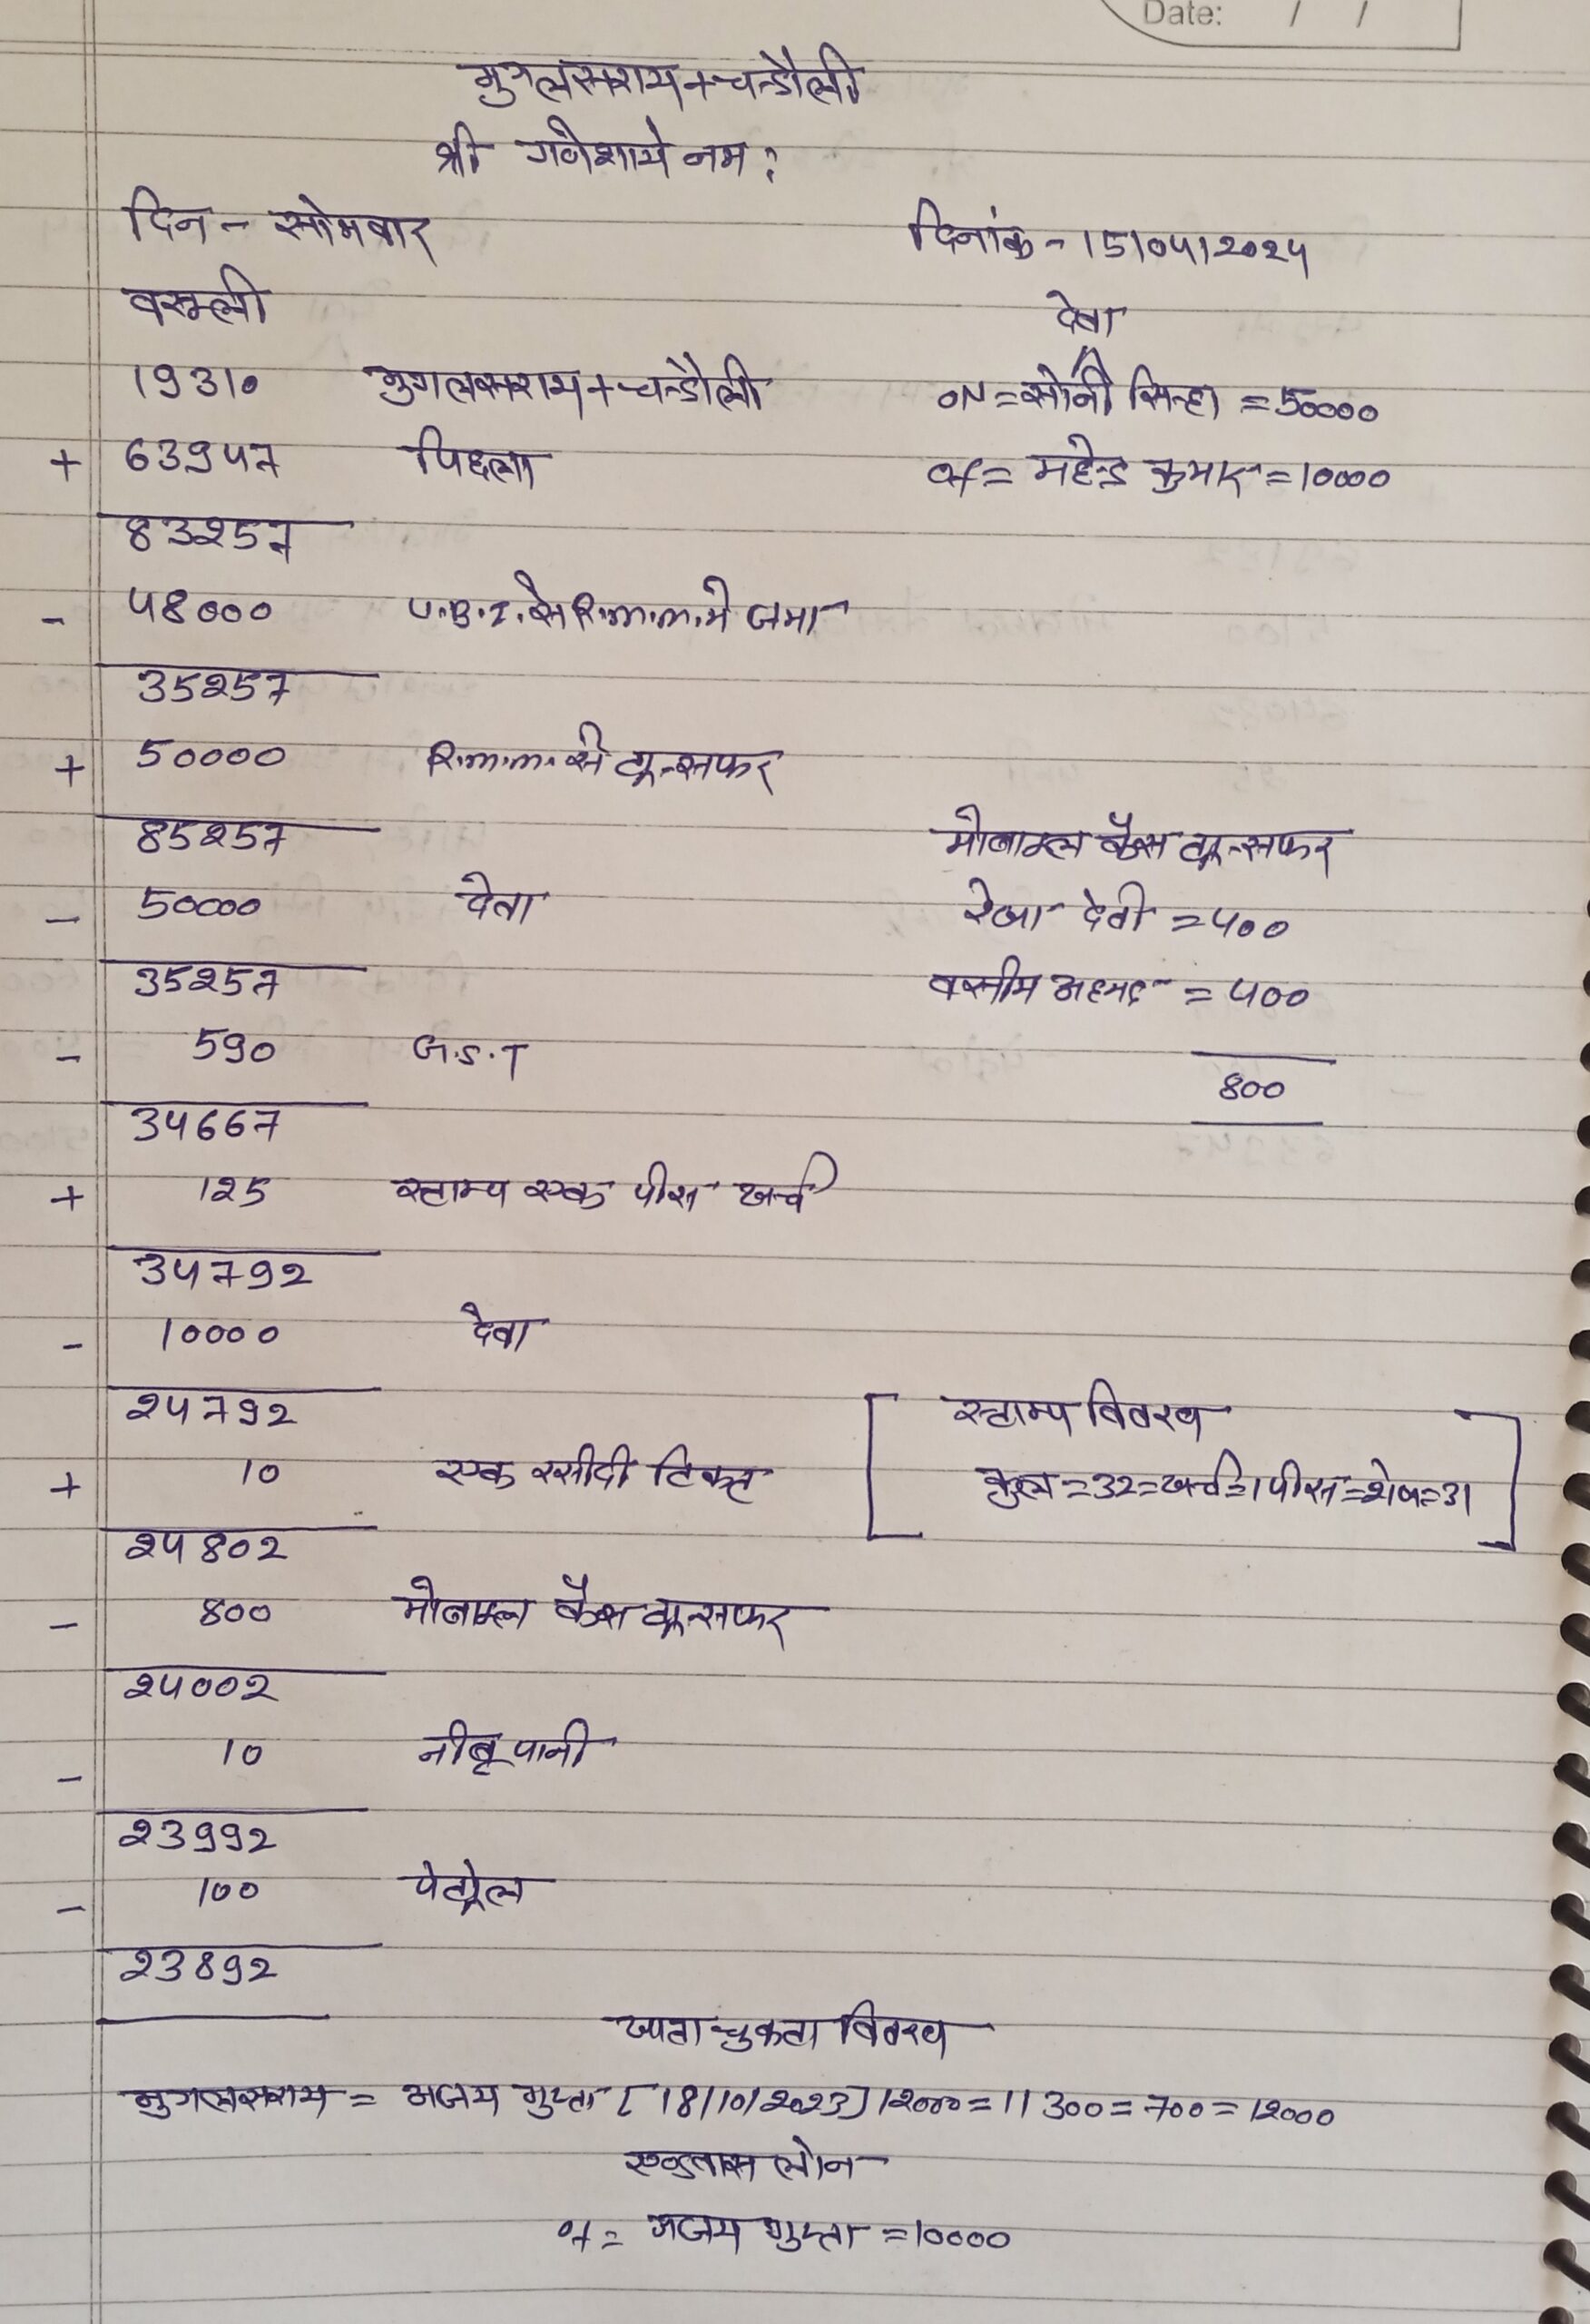 Date: / /
मुगलसराय + चन्दौली
श्री गणेशाये नमः
दिन - सोमवार
दिनांक - 15/04/2024
वसूली
देना
19310 मुगलसराय + चन्दौली
ON = सोनी सिन्हा = 50000
+ 63947 पिछला
of = महेन्द्र कुमार = 10000
83257
- 48000 U.B.I. से R.m.m. मे जमा
35257
+ 50000 R.m.m. से ट्रान्सफर
85257
मोबाइल कैस ट्रान्सफर
- 50000 देना
रेखा देवी = 400
35257
वसीम अहमद = 400
- 590 G.S.T
800
34667
+ 125 स्टाम्प एक पीस खर्च
34792
- 10000 देना
24792
स्टाम्प विवरण
+ 10 एक रसीदी टिकट
कुल = 32 = खर्च = 1 पीस = शेष = 31
24802
- 800 मोबाइल कैस ट्रान्सफर
24002
- 10 नीबू पानी
23992
- 100 पेट्रोल
23892
खाता चुकता विवरण
मुगलसराय = अजय गुप्ता [18/10/2023] 12000 = 11300 = 700 = 12000
एडवास लोन
of = अजय गुप्ता = 10000